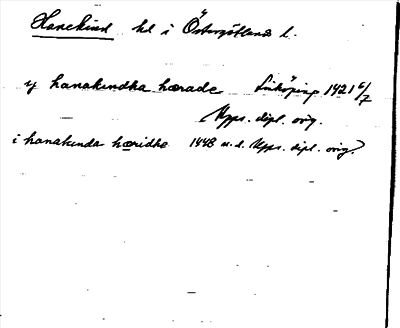 Hanekind hd i Östergötlands l.
ij hanakindha hærade Linköping 1421 6/7
Upps. dipl. orig.
i hanakinda hæridhe 1448 u.d. Upps. dipl. orig.